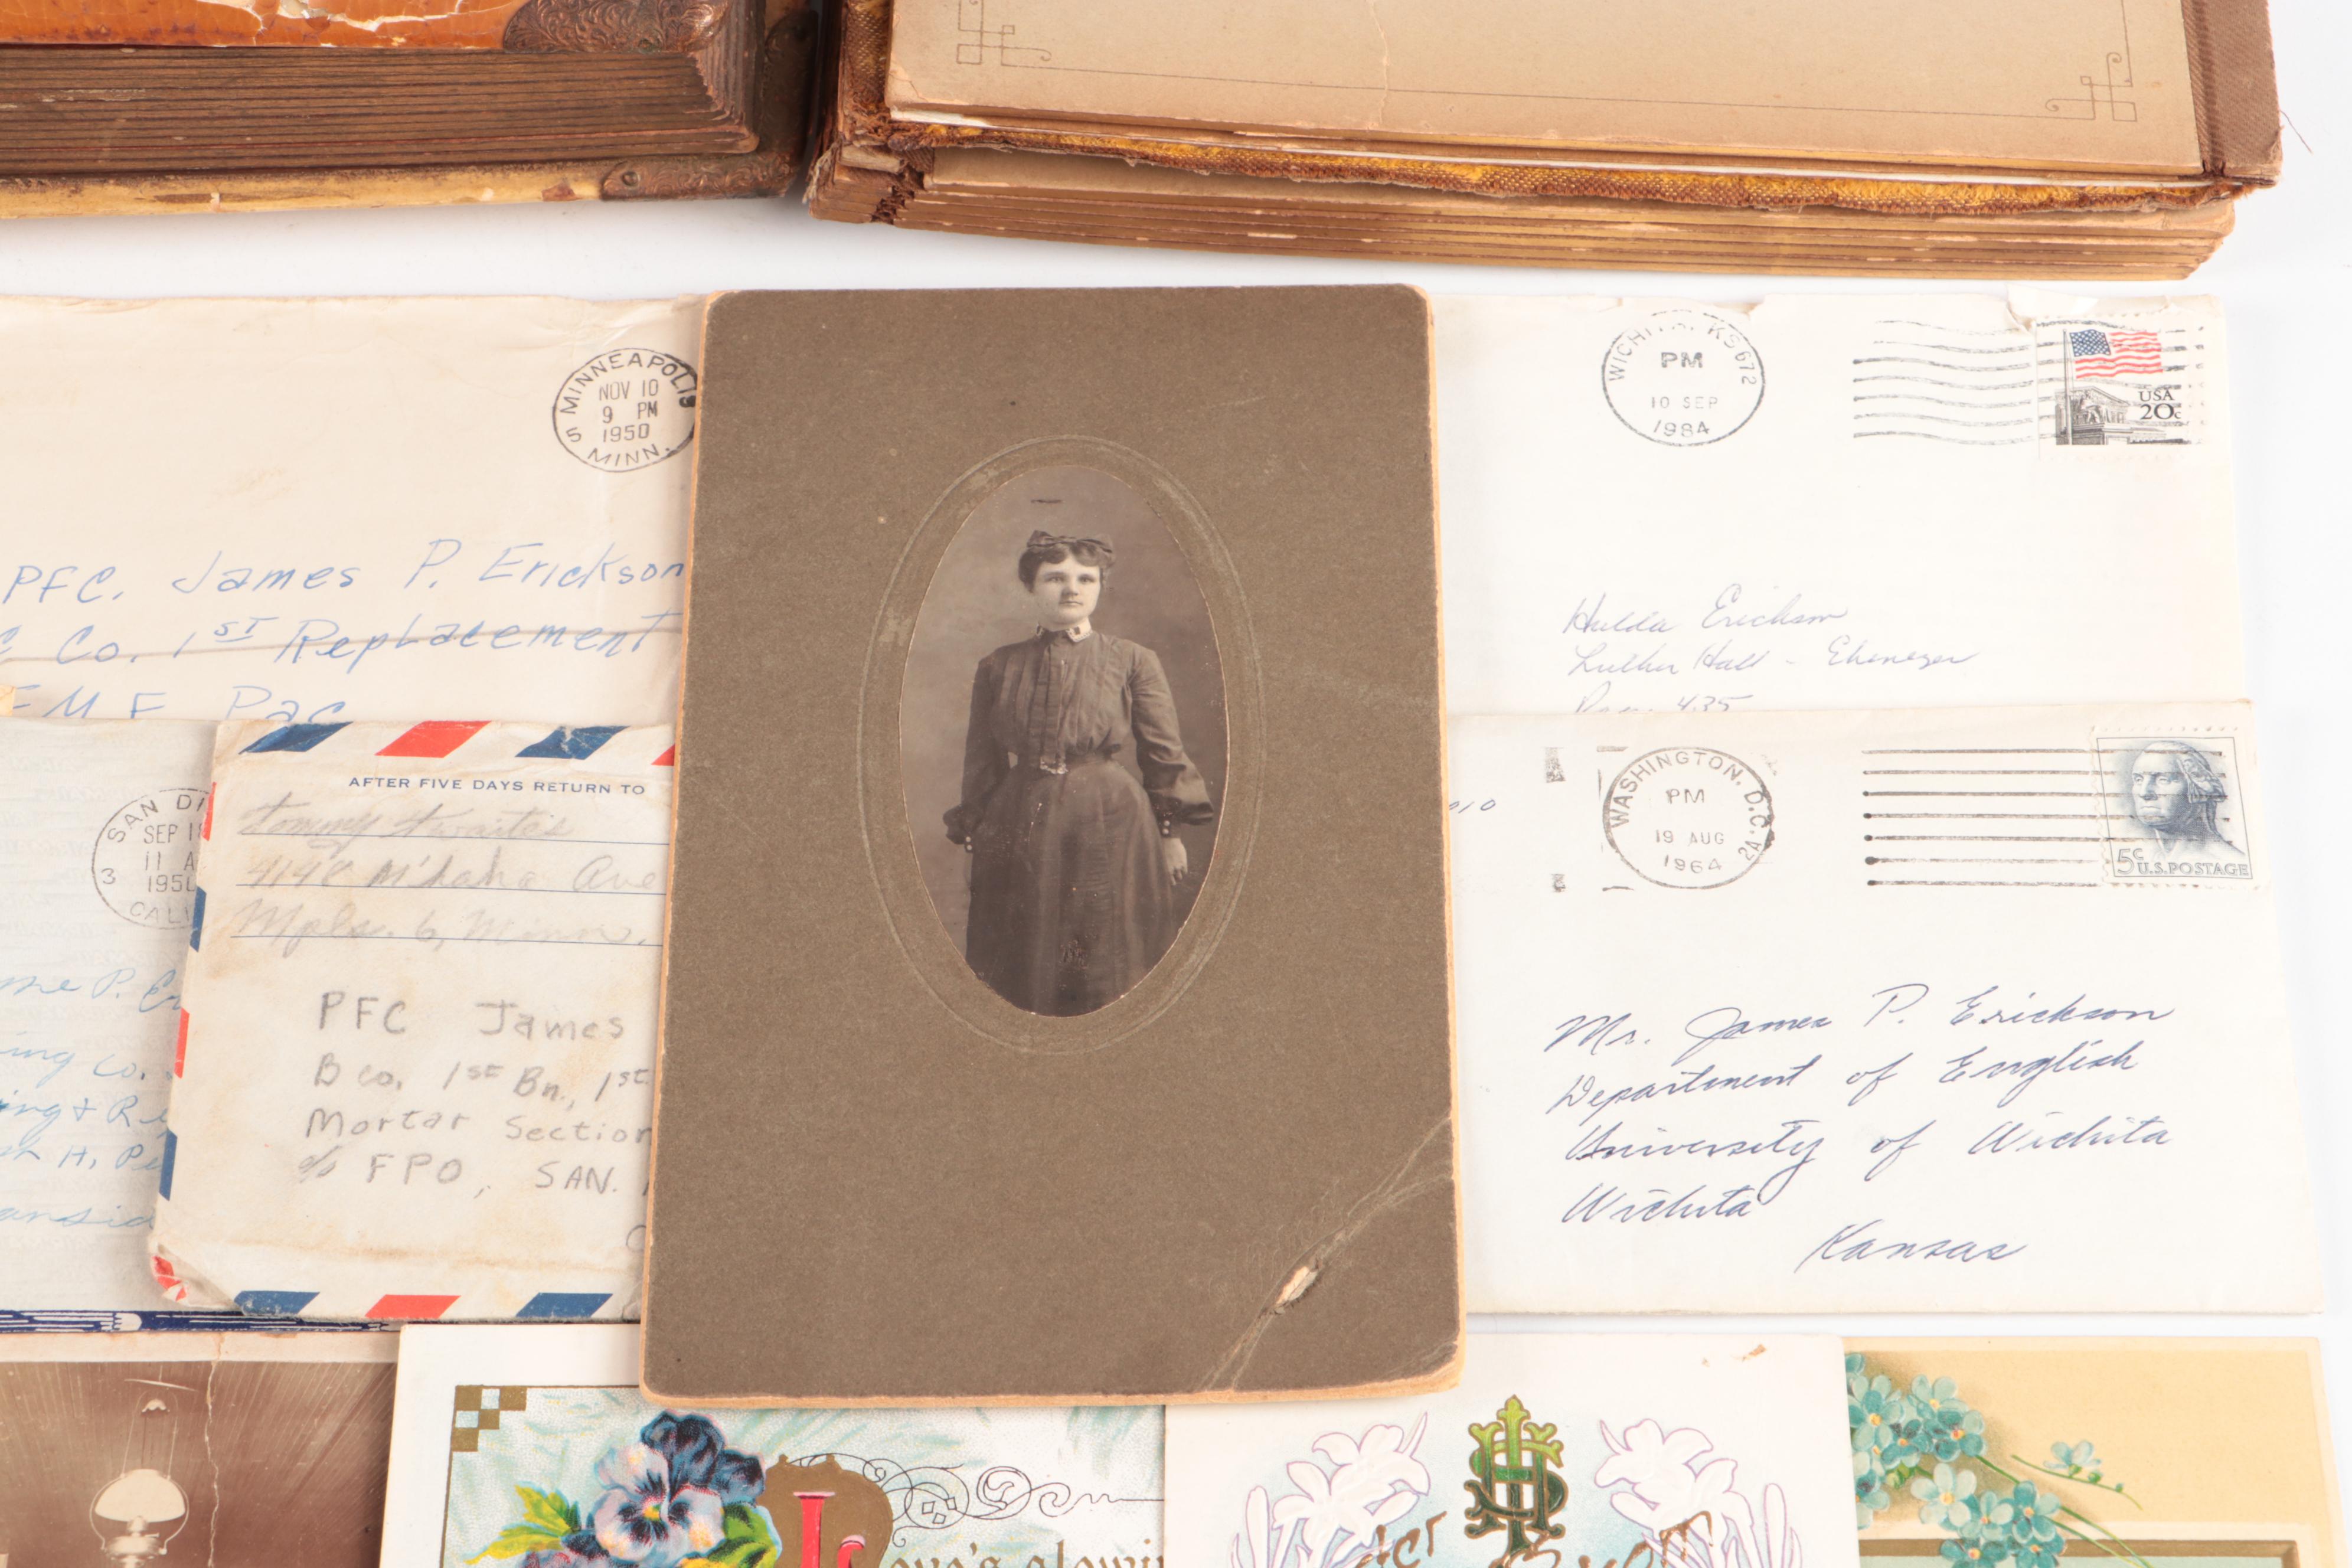 MINNEAPOLIS
NOV 10
9 PM
1950
5 MINN.
PFC. James P. Erickson
C Co. 1ST Replacement
FMF Pac
WICHITA, KS 672
PM
10 SEP
1984
USA
20c
Hulda Erickson
Luther Hall - Ebenezer
435
SAN DI
SEP 18
11 A
195
3 CAL
P. Er
ing Co.
ing + Re
H, Pe
AFTER FIVE DAYS RETURN TO
Tommy Thwaites
4148 M'haha Ave
Mpls. 6, Minn.
PFC James
B co. 1st Bn., 1st
Mortar Section
c/o FPO, SAN.
WASHINGTON, D.C.
PM
19 AUG
1964
2A
5c U.S. POSTAGE
Mr. James P. Erickson
Department of English
University of Wichita
Wichita
Kansas
Love's glowi
IHS